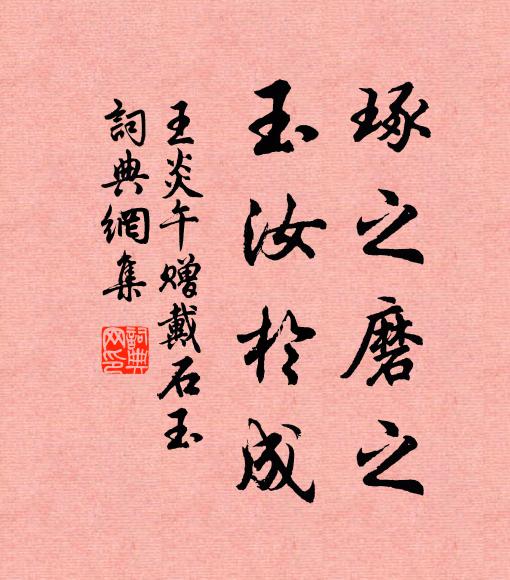 琢之磨之
玉汝於成
王炎午贈戴石玉
詞典網集
詞典網印